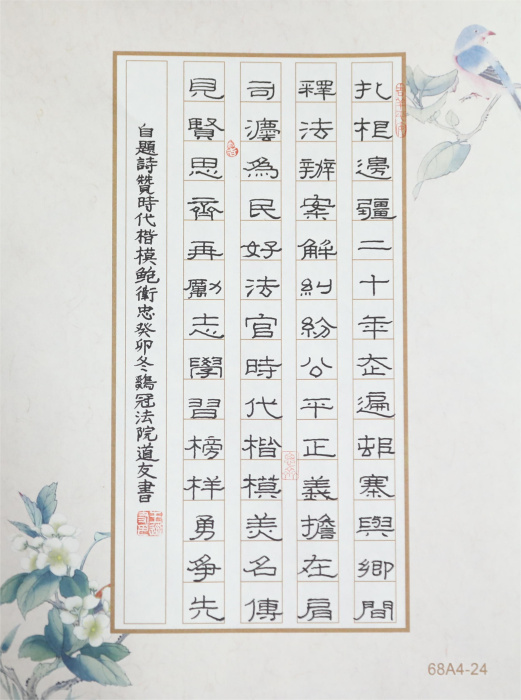 扎根邊疆二十年走遍邨寨與鄉間
釋法辦案解糾紛公平正義擔在肩
司灋為民好法官時代楷模美名傳
見賢思齊再勵志學習榜样勇爭先
自題詩贊時代楷模鮑衛忠癸卯冬鷄冠法院道友書
68A4-24